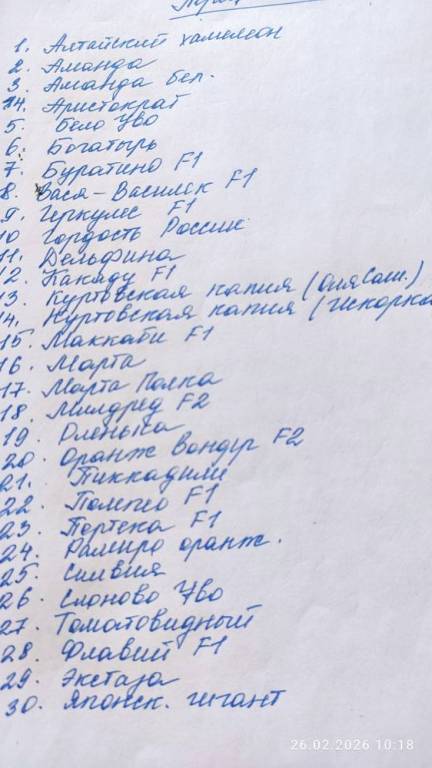 1. Алтайский хамелеон
2. Аманда
3. Аманда бел.
14. Аристократ
5. Бело Уво
6. Богатырь
7. Буратино F1
8. Вася-Василек F1
9. Геркулес F1
10 Гордость России
11. Дельфина
12. Какаду F1
13. Куртовская капия (ОляСаш.)
14. Куртовская капия (гискорка
15. Маккаби F1
16. Марта
17. Марта Полка
18. Милдред F2
19. Оленька
20. Оранж Вондер F2
21. Пиккадили
22. Помпео F1
23. Портека F1
24. Рамиро оранж.
25. Сильвия
26. Слоново Уво
27. Томатовидный
28. Флавий F1
29. Экстаза
30. Японск. гигант
26.02.2026 10:18